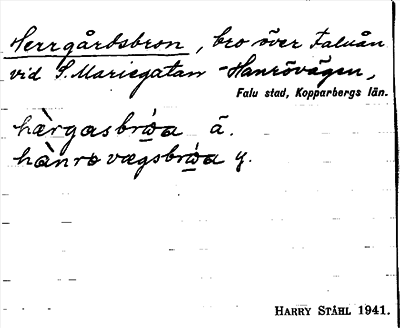 Herrgårdsbron, bro över Faluån
vid S. Mariegatan - Hanrövägen,
Falu stad, Kopparbergs län.
hærgasbrṷa ä.
hànrovægsbrṷa y.
HARRY STÅHL 1941.